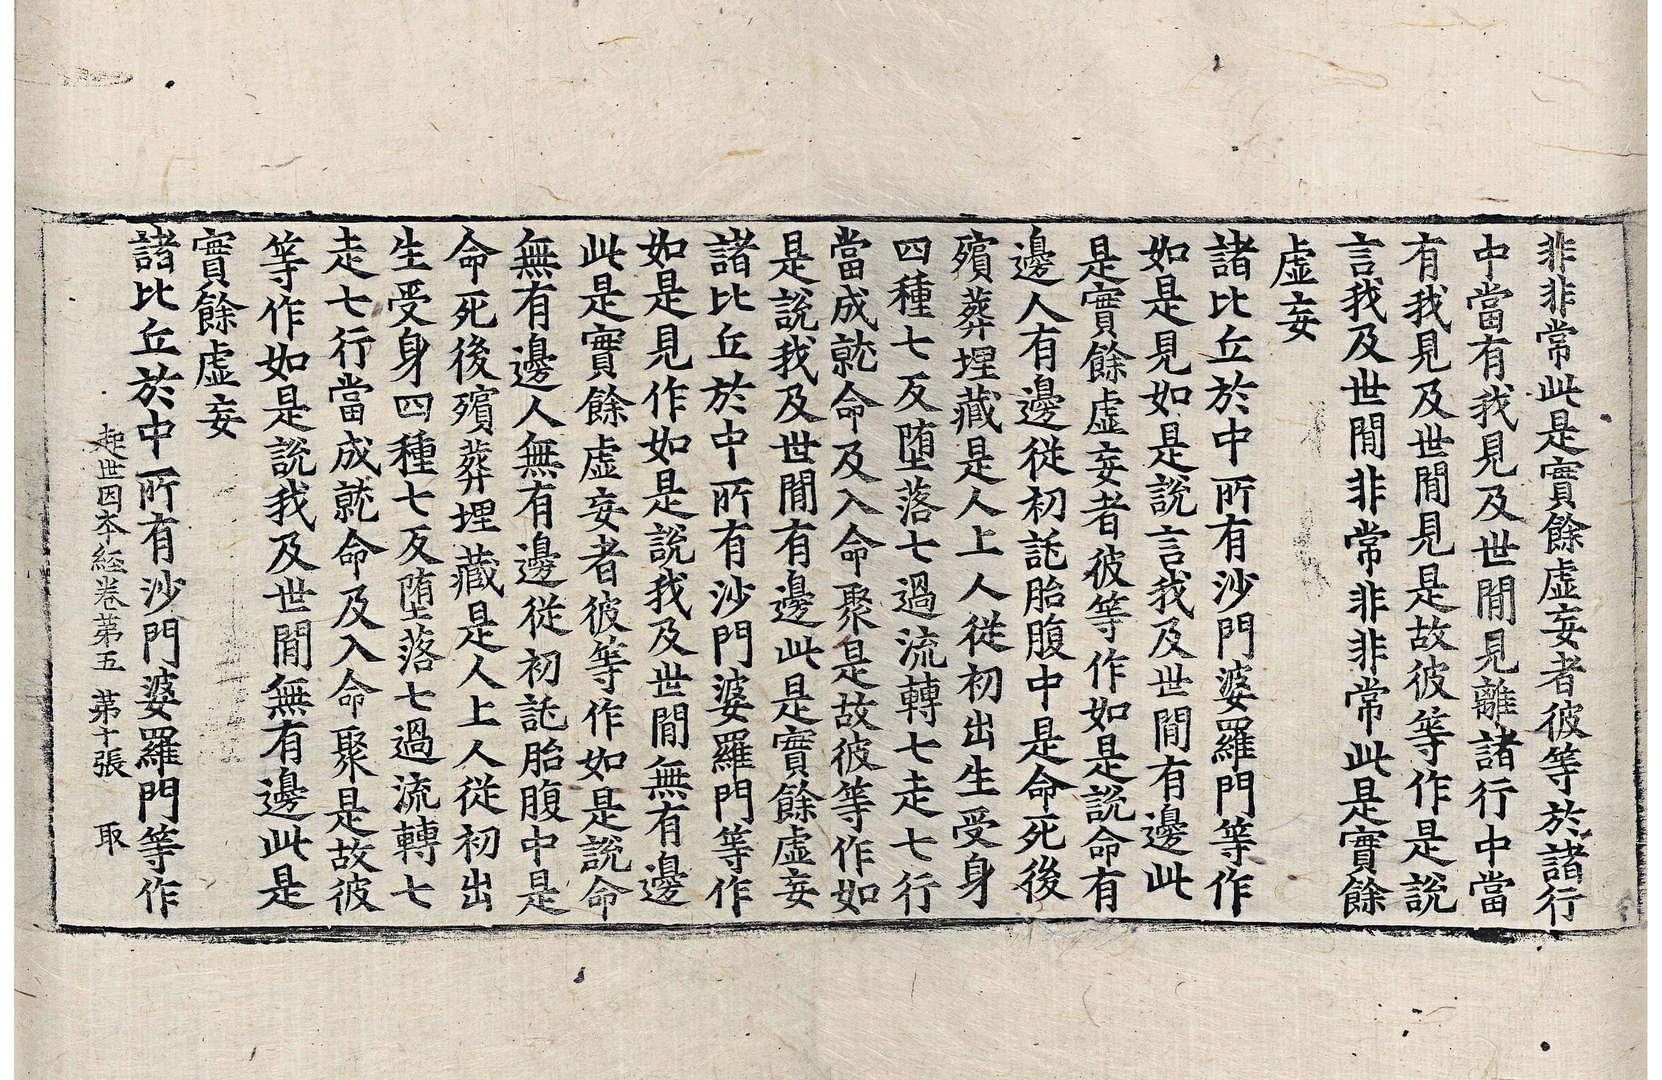 非非常此是實餘虛妄者彼等於諸行
中當有我見及世間見離諸行中當
有我見及世間見是故彼等作是說
言我及世間非常非非常此是實餘
虛妄
諸比丘於中所有沙門婆羅門等作
如是見如是說言我及世間有邊此
是實餘虛妄者彼等作如是說命有
邊人有邊從初託胎腹中是命死後
殯葬埋藏是人上人從初出生受身
四種七反墮落七過流轉七走七行
當成就命及入命聚是故彼等作如
是說我及世間有邊此是實餘虛妄
諸比丘於中所有沙門婆羅門等作
如是見作如是說我及世間無有邊
此是實餘虛妄者彼等作如是說命
無有邊人無有邊從初託胎腹中是
命死後殯葬埋藏是人上人從初出
生受身四種七反墮落七過流轉七
走七行當成就命及入命聚是故彼
等作如是說我及世間無有邊此是
實餘虛妄
諸比丘於中所有沙門婆羅門等作
起世因本經卷第五 第十張 取